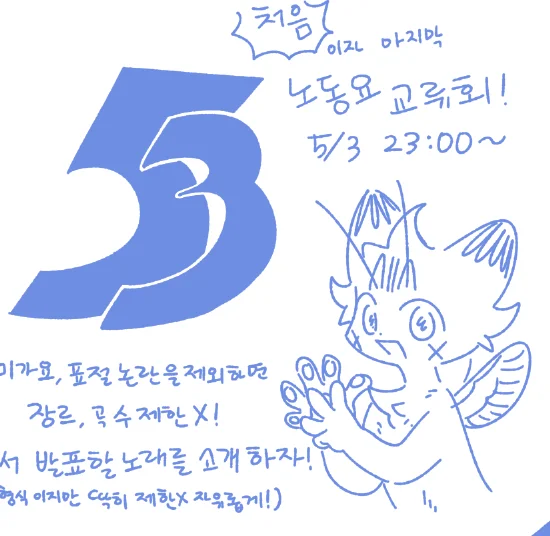 처음
이자 마지막
노동요 교류회!
5/3 23:00~
53
미가요, 표절 논란을 제외하면
장르, 곡 수 제한 X!
서 발표할 노래를 소개 하자!
형식 이지만 딱히 제한X 자유롭게!)